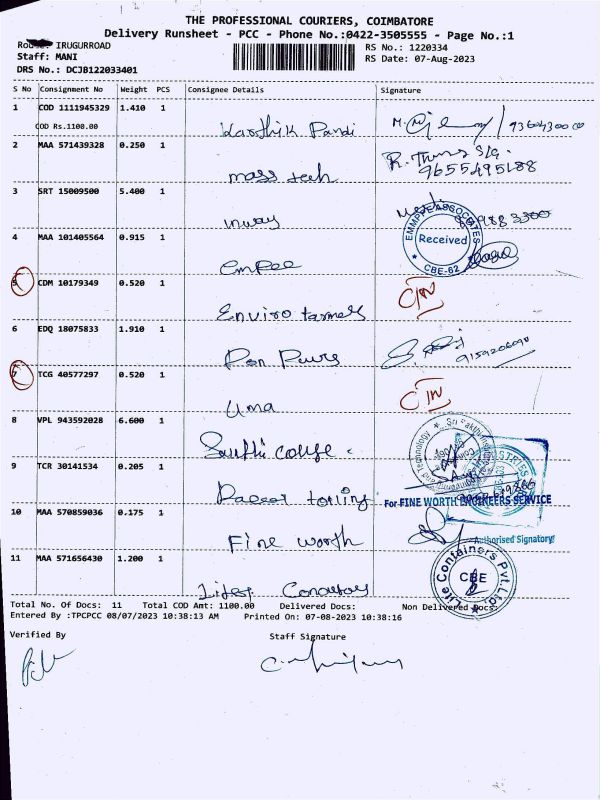 THE PROFESSIONAL COURIERS, COIMBATORE
Delivery Runsheet - PCC - Phone No.:0422-3505555 - Page No.:1
Route: IRUGURROAD
RS No.: 1220334
Staff: MANI
RS Date: 07-Aug-2023
DRS No.: DCJB122033401
S No Consignment No Weight PCS Consignee Details Signature
1 COD 1111945329 1.410 1 Karthik Pandi
COD Rs.1100.00
2 MAA 571439328 0.250 1 mass tech
9655495188
3 SRT 15009500 5.400 1 inway
4 MAA 101405564 0.915 1 Empee
EMMPEE ASSOCIATES
Received
CBE-62
5 CDM 10179349 0.520 1 Enviro
6 EDQ 18075833 1.910 1 Pon
7 TCG 40577297 0.520 1 Uma
8 VPL 943592028 6.600 1
9 TCR 30141534 0.205 1
For FINE WORTH ENGINEERS SERVICE
10 MAA 570859036 0.175 1 Fine worth
Authorised Signatory
11 MAA 571656430 1.200 1
Lite Containers Pvt Ltd.
CBE
Total No. Of Docs: 11 Total COD Amt: 1100.00 Delivered Docs: Non Delivered Docs:
Entered By :TPCPCC 08/07/2023 10:38:13 AM Printed On: 07-08-2023 10:38:16
Verified By Staff Signature